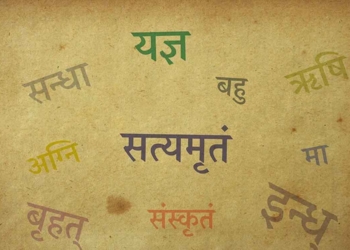 यज्ञ
सन्धा
बहु
ऋषि
अग्नि
सत्यमृतं
मा
बृहत्
संस्कृतं
इन्ध